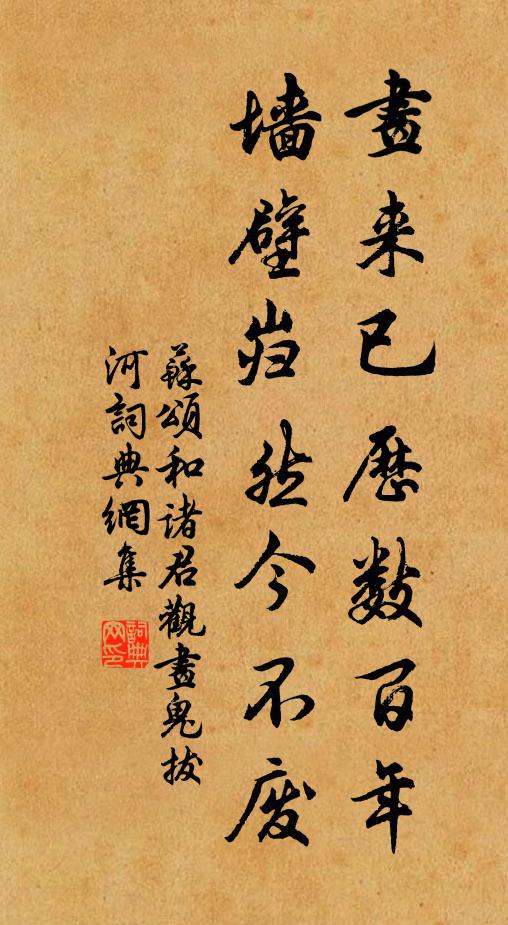 畫来已歷数百年
墙壁岿然今不废
蘇頌和诸君觀畫鬼拔
河詞典網集
詞典
网印